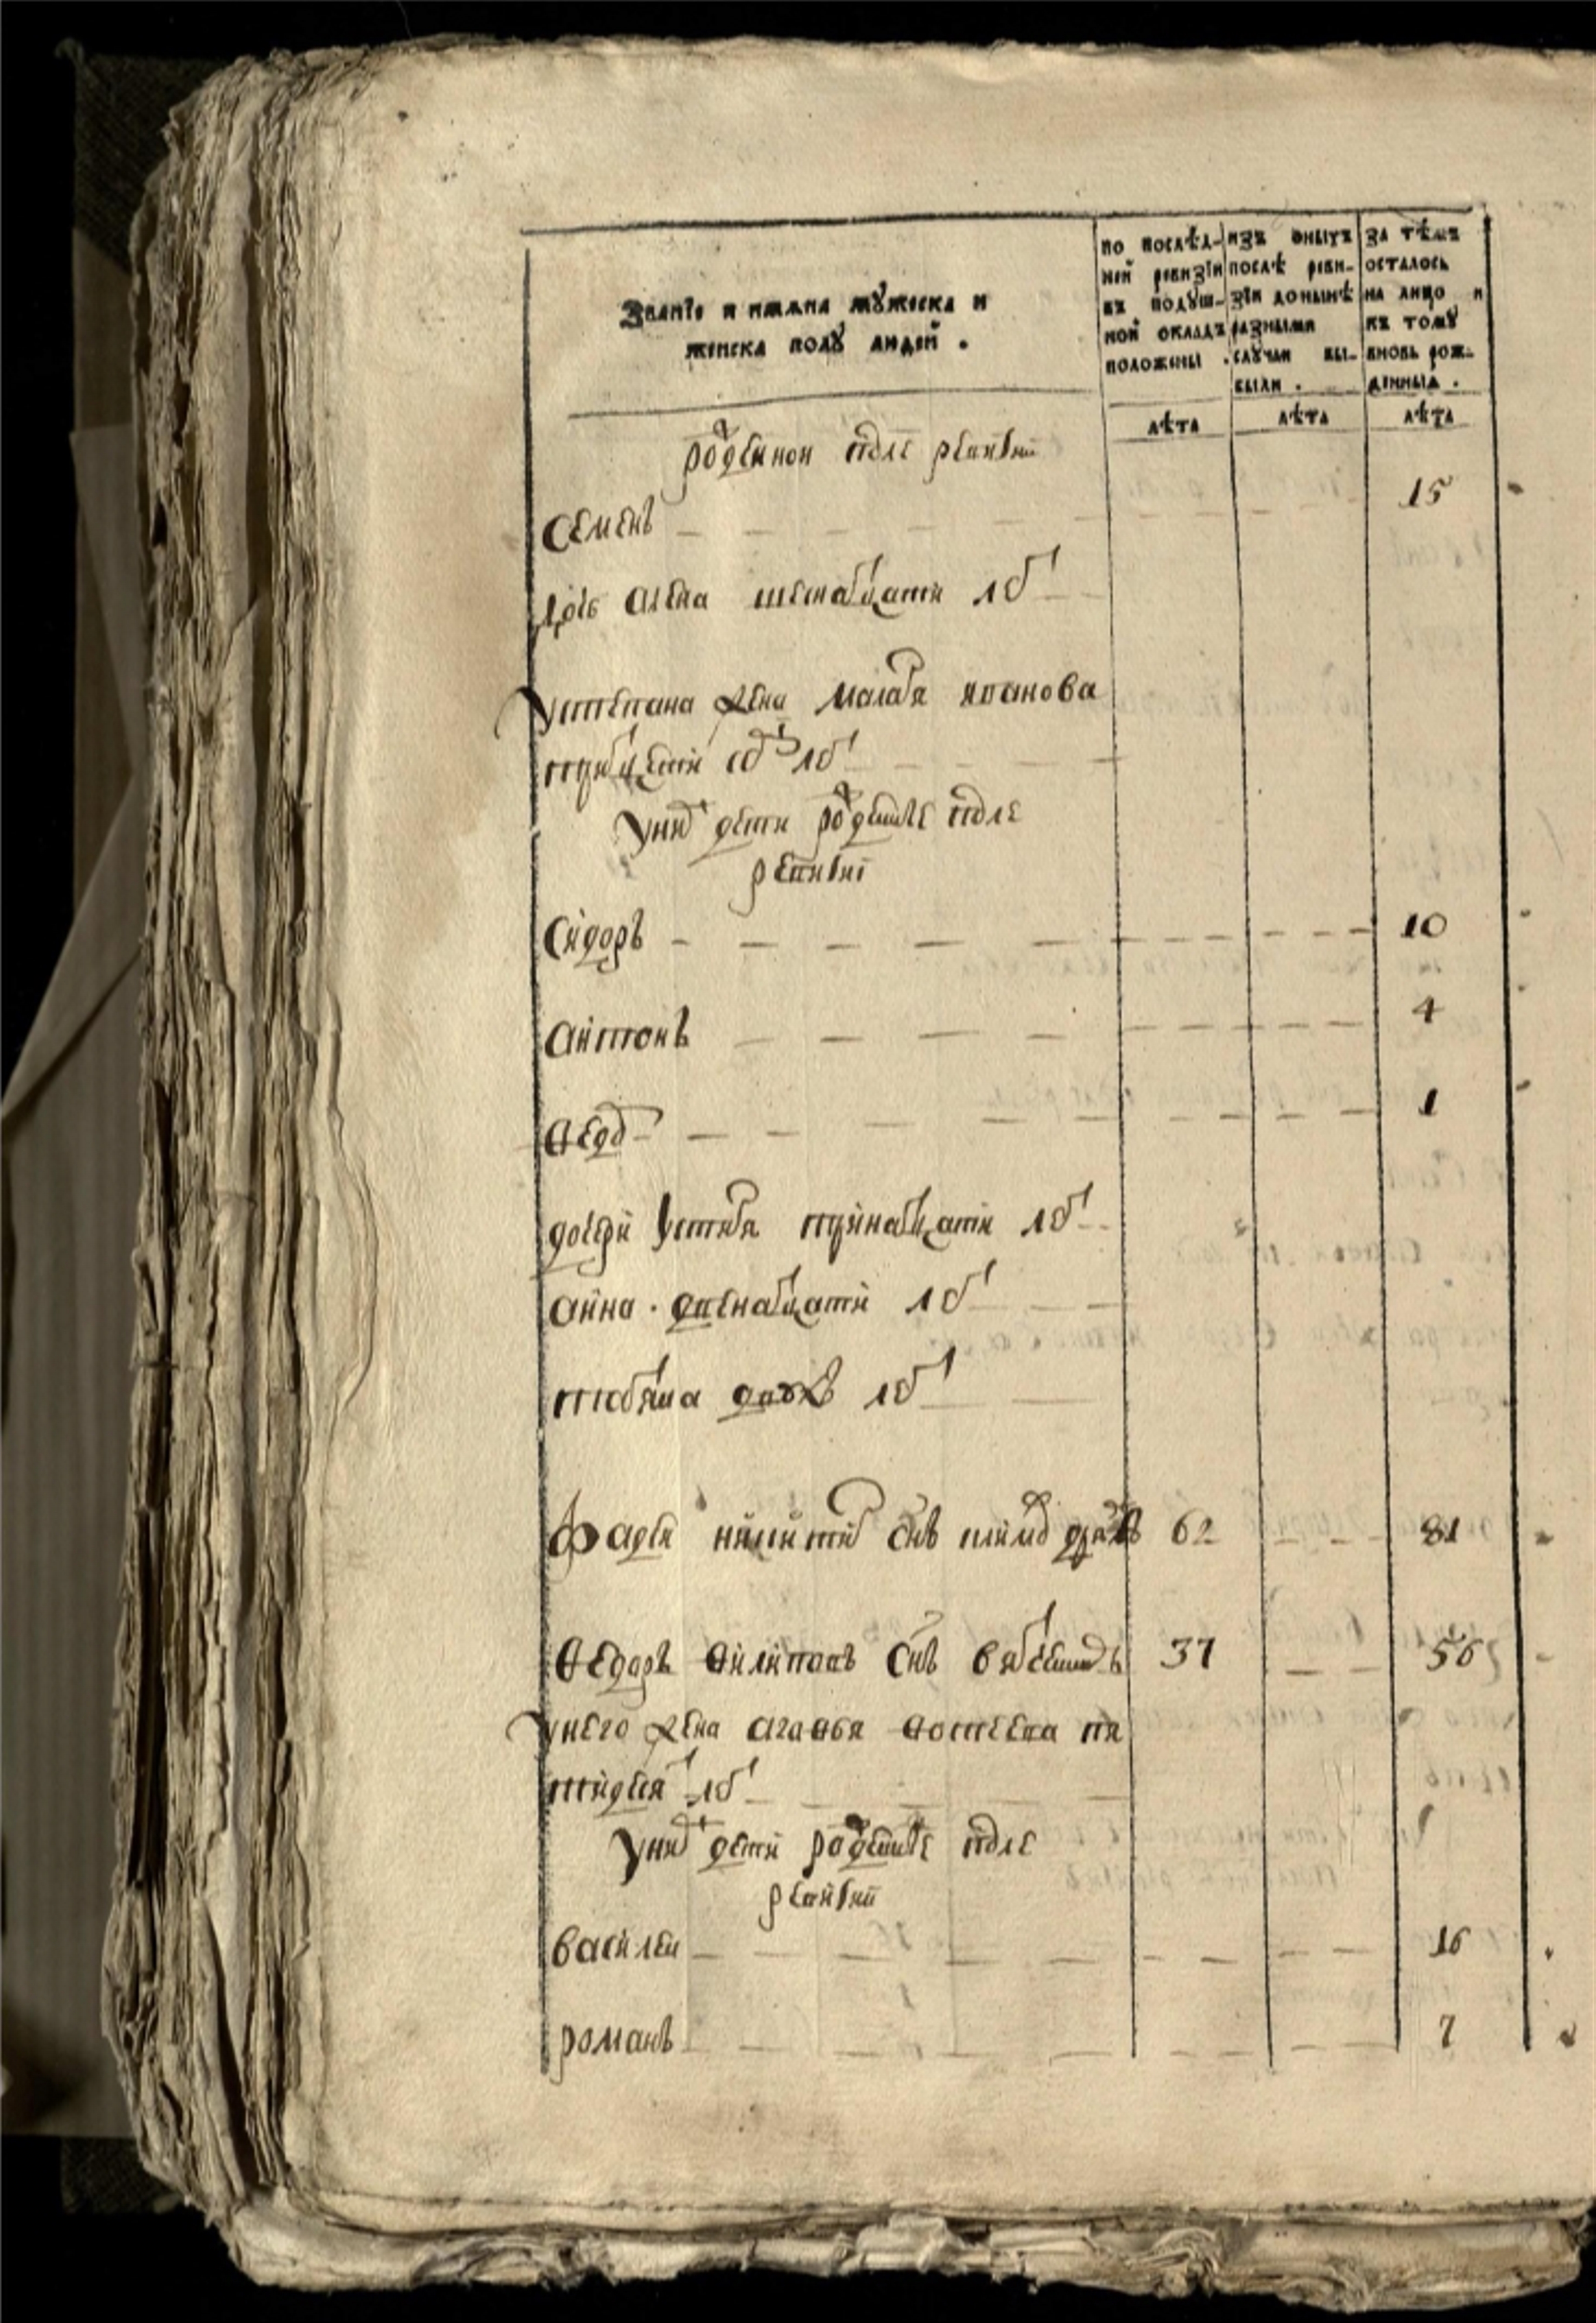 Званїе и имѧна мꙋжеска и
женска полꙋ людей .
по послѣд-
ней ревизїи
въ подꙋш-
ной окладъ
положены .
изъ оныхъ
послѣ реви-
зїи донынѣ
разными
слꙋчаи вы-
были .
за тѣмъ
осталось
на лицо и
къ томꙋ
вновь рож-
дѣнныѧ .
лѣта лѣта лѣта
рожденнои после ревизии
Семенъ 15
дочь алена шеснатцати летъ
Устепана жена маланя иванова
тритцети летъ
Униⷯ дети рожденые после
ревизии
Сидоръ 10
антонъ 4
Ѳедоⷬ 1
дочери устиня тринатцати летъ
анна . двенатцати летъ
татьяна двухъ летъ
Фадеи никитиⷩ снъ 62 81
Ѳедоръ Ѳилиповъ снъ 37 56
Унего жена агаѳья Ѳостеева пя
тидеся летъ
Униⷯ дети рожденые после
ревизии
василеи 16
романъ 7